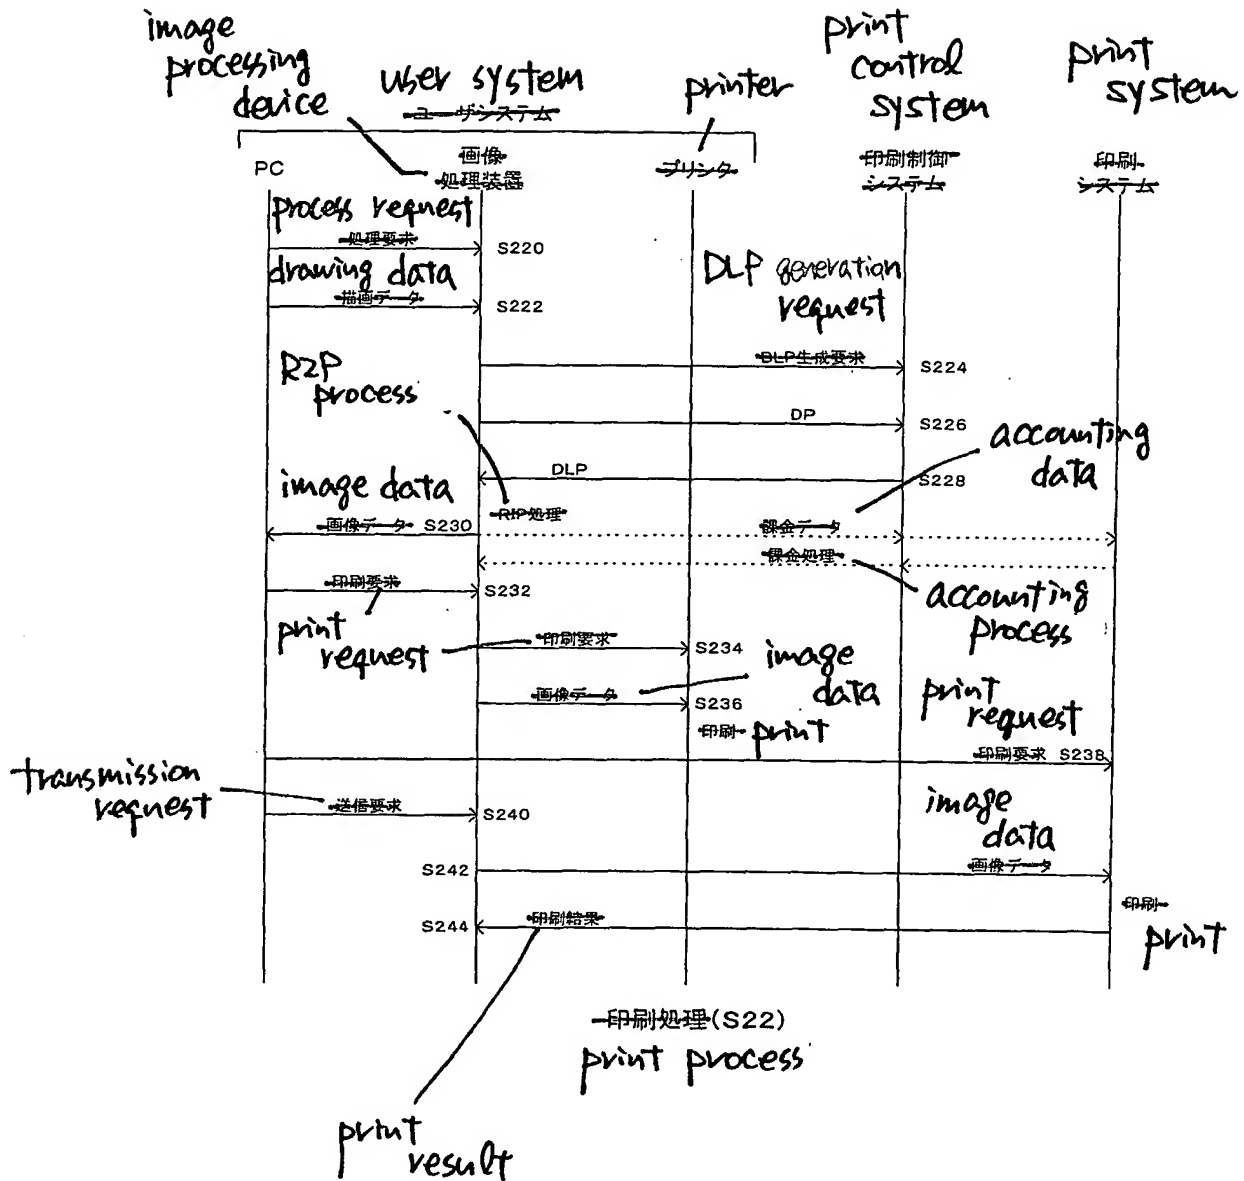 image
processing
device
user system
ユーザシステム
printer
print
control
system
print
system
PC
画像
処理装置
プリンタ
印刷制御
システム
印刷
システム
process request
処理要求
S220
drawing data
描画データ
S222
DLP generation
request
DLP生成要求
S224
RIP
process
DP
S226
accounting
data
DLP
S228
image data
RIP処理
画像データ S230
課金データ
課金処理
印刷要求
S232
accounting
process
print
request
印刷要求
S234
image
data
画像データ
S236
print
request
印刷
print
印刷要求 S238
transmission
request
送信要求
S240
image
data
S242
画像データ
S244
印刷結果
印刷
print
印刷処理(S22)
print process
print
result